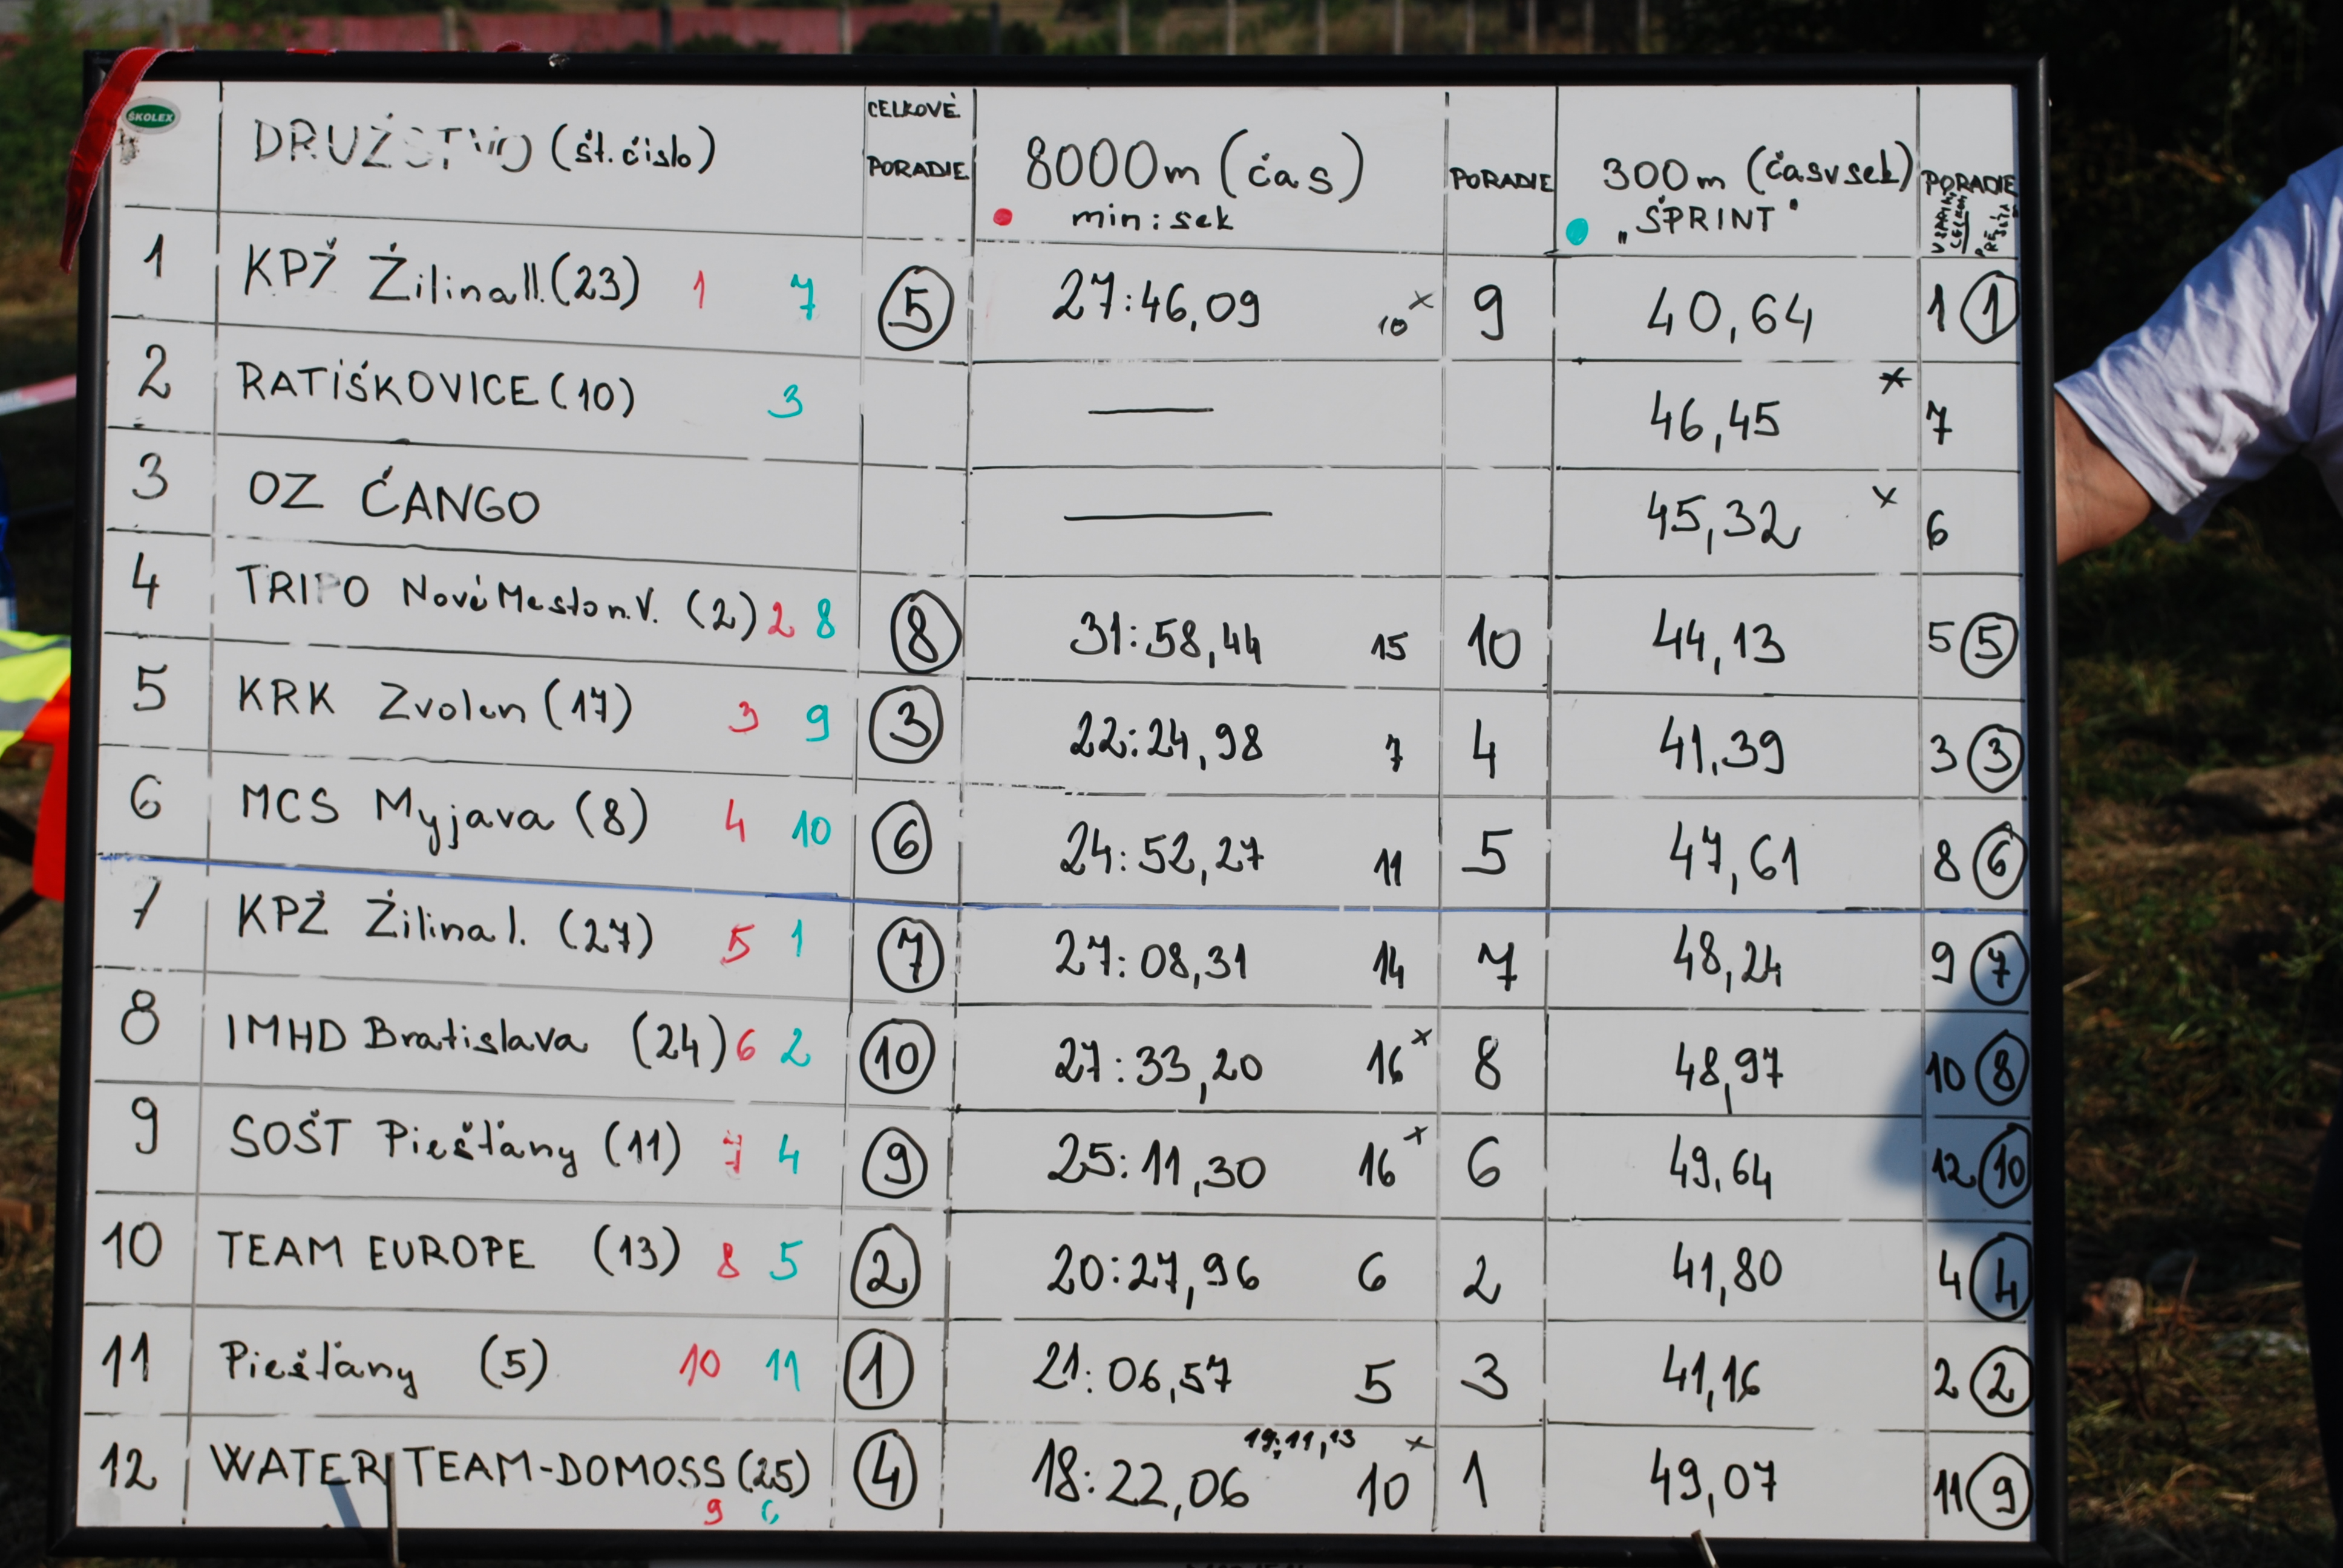 ŠKOLEX
DRUŽSTVO (št. číslo) CELKOVÉ PORADIE 8000m (čas) min:sek PORADIE 300m (čas v sek) „SPRINT" PORADIE
1 KPŽ Žilina II. (23) 1 7 5 27:46,09 10x 9 40,64 1 1
2 RATIŠKOVICE (10) 3 — 46,45 x 7
3 OZ ČANGO — 45,32 x 6
4 TRIPO Nové Mesto n.V. (2) 2 8 8 31:58,44 15 10 44,13 5 5
5 KRK Zvolen (17) 3 9 3 22:24,98 7 4 41,39 3 3
6 MCS Myjava (8) 4 10 6 24:52,27 11 5 47,61 8 6
7 KPŽ Žilina I. (27) 5 1 7 27:08,31 14 7 48,24 9 7
8 IMHD Bratislava (24) 6 2 10 27:33,20 16x 8 48,97 10 8
9 SOŠT Piešťany (11) 7 4 9 25:11,30 16x 6 49,64 12 10
10 TEAM EUROPE (13) 8 5 2 20:27,96 6 2 41,80 4 4
11 Piešťany (5) 10 11 1 21:06,57 5 3 41,16 2 2
12 WATER TEAM-DOMOSS (25) 9 6 4 18:22,06 19:11,13 10x 1 49,07 11 9